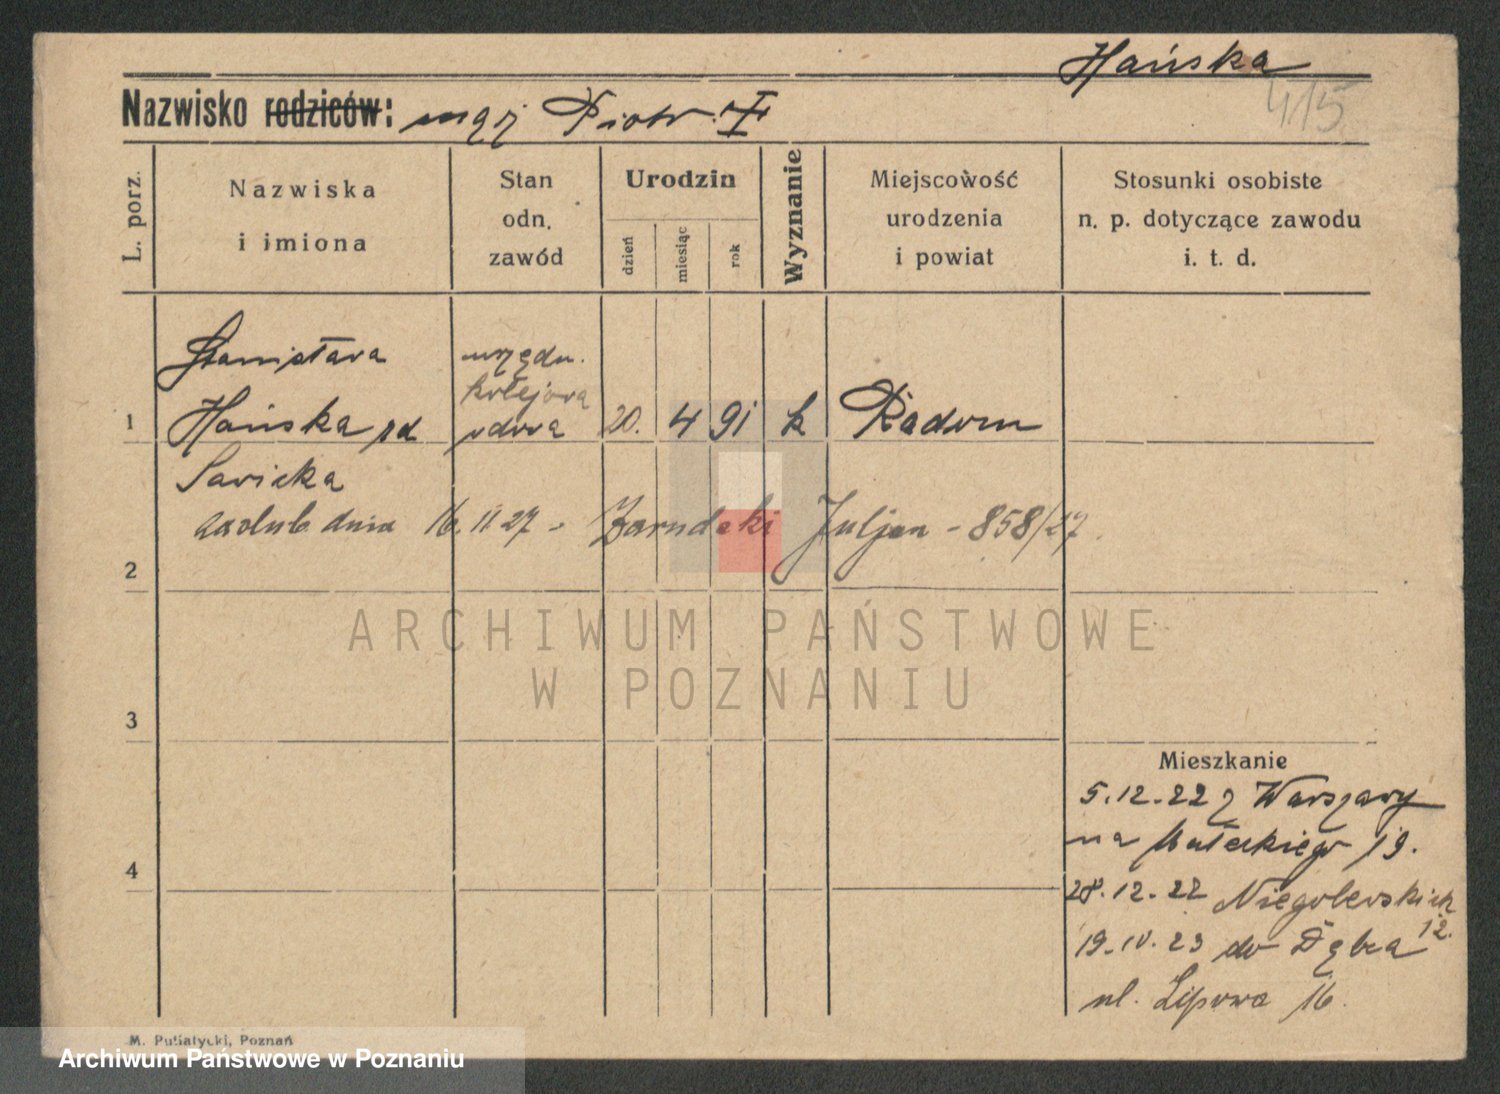 Hańska
415
Nazwisko rodziców: mąż Piotr. †
L. porz.
Nazwiska
i imiona
Stan
odn.
zawód
Urodzin
dzień
miesiąc
rok
Wyznanie
Miejscowość
urodzenia
i powiat
Stosunki osobiste
n. p. dotyczące zawodu
i. t. d.
Stanisława
urzędn.
kolejowa
1 Hańska rd wdowa 20. 4 91 k Radom
Sawicka
zaślub. dnia 16. 11 27 - Zarudzki Juljan - 858/27.
2
ARCHIWUM PAŃSTWOWE
W POZNANIU
3
Mieszkanie
5.12.22 z Warszawy
na Małeckiego 19.
4
28.12.22 Niegolewskich
12.
19.IV.23 do Dębca
ul. Lipowa 16.
M. Putiatycki, Poznań
Archiwum Państwowe w Poznaniu